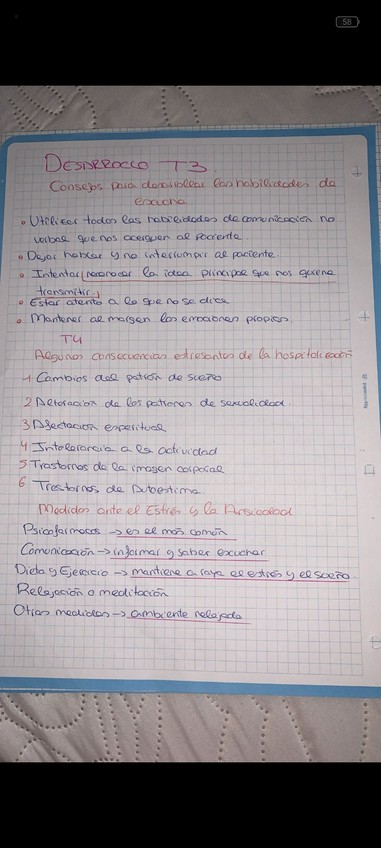 58
DESARROLLO T3
Consejos para desarrollar las habilidades de
escucha
• Utilizar todas las habilidades de comunicación no
verbal que nos acerquen al paciente.
• Dejar hablar y no interrumpir al paciente.
• Intentar reconocer la idea principal que nos quiere
transmitir.
• Estar atento a lo que no se dice
• Mantener al margen las emociones propias.
T4
Algunas consecuencias estresantes de la hospitalización
1 Cambios del patrón de sueño
2 Alteración de los patrones de sexualidad.
3 Afectación espiritual
4 Intolerancia a la actividad
5 Trastornos de la imagen corporal
6 Trastornos de Autoestima
Medidas ante el Estrés y la Ansiedad
Psicofármacos → es el más común
Comunicación → informar y saber escuchar
Dieta y Ejercicio → mantiene a raya el estrés y el sueño
Relajación o meditación
Otras medidas → ambiente relajado